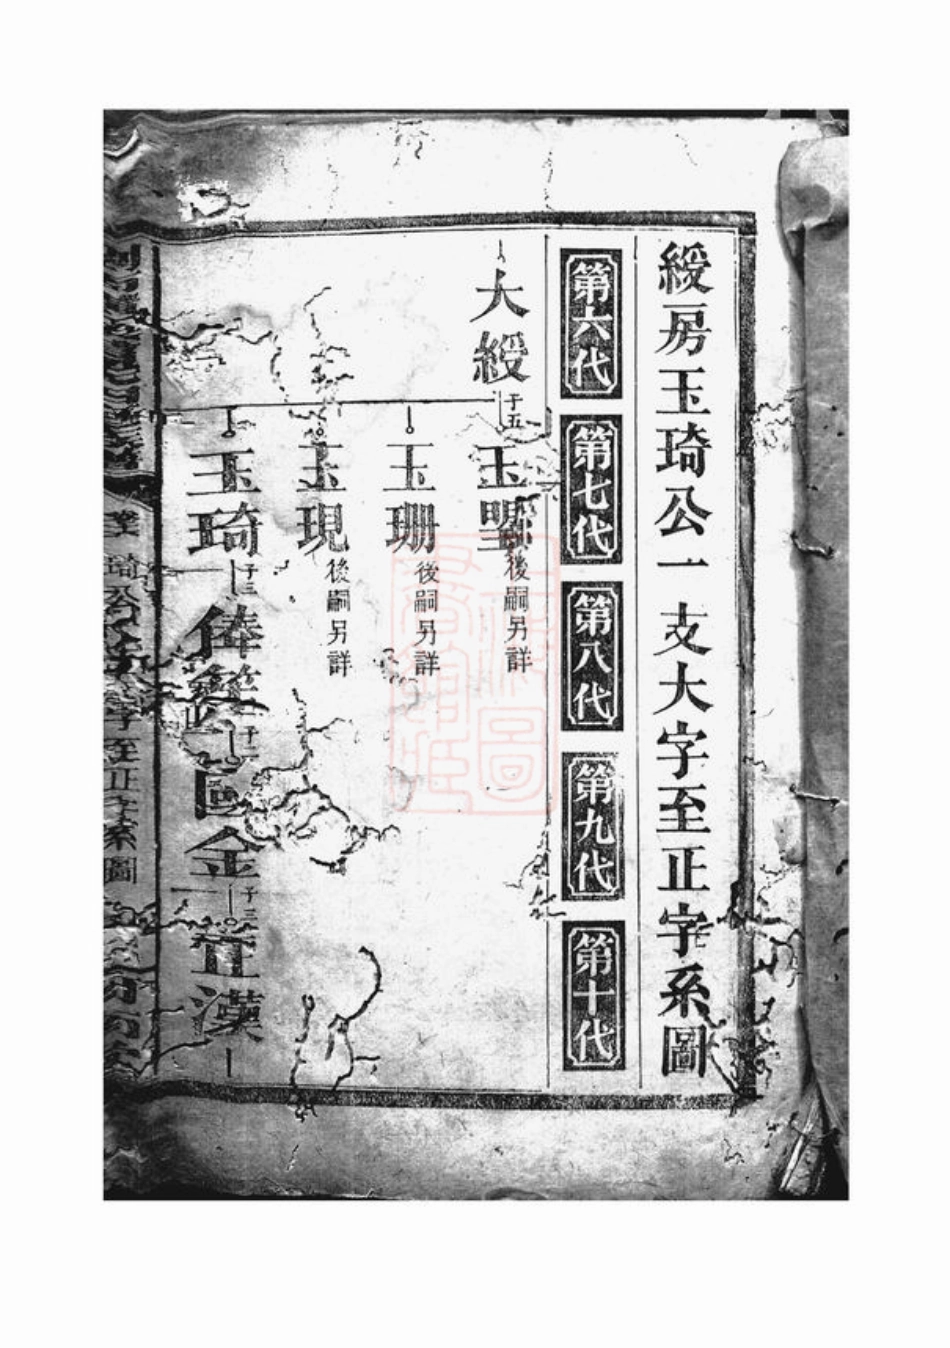 綬房玉琦公一支大字至正字系圖
第六代
第七代
第八代
第九代
第十代
大綬
子五
玉
後嗣另詳
玉珊
後嗣另詳
玉現
後嗣另詳
玉琦
子三
俸
國金
子三
正漢
琦公
字至正字系圖